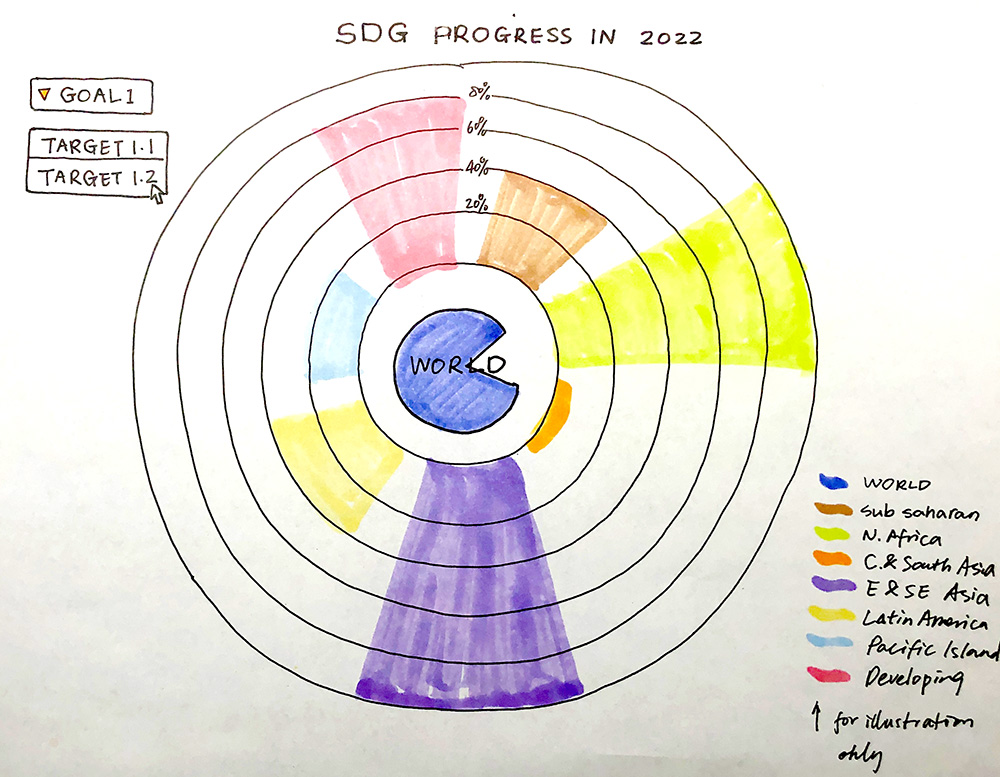 SDG PROGRESS IN 2022
GOAL 1
TARGET 1.1
TARGET 1.2
80%
60%
40%
20%
WORLD
WORLD
Sub saharan
N. Africa
C. & South Asia
E & SE Asia
Latin America
Pacific Island
Developing
↑ for illustration
only